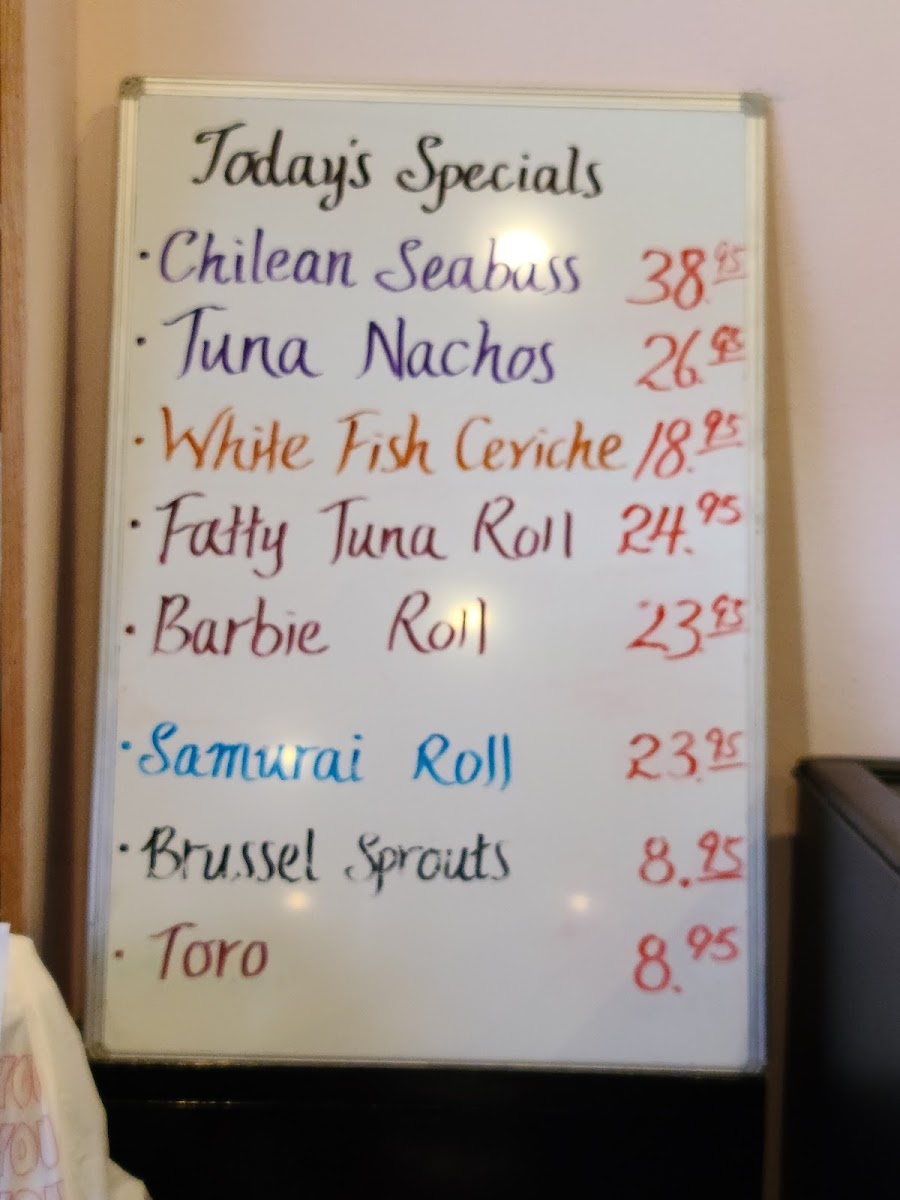 Today's Specials
· Chilean Seabass 38.95
· Tuna Nachos 26.95
· White Fish Ceviche 18.95
· Fatty Tuna Roll 24.95
· Barbie Roll 23.95
· Samurai Roll 23.95
· Brussel Sprouts 8.95
· Toro 8.95
YOU
YOU